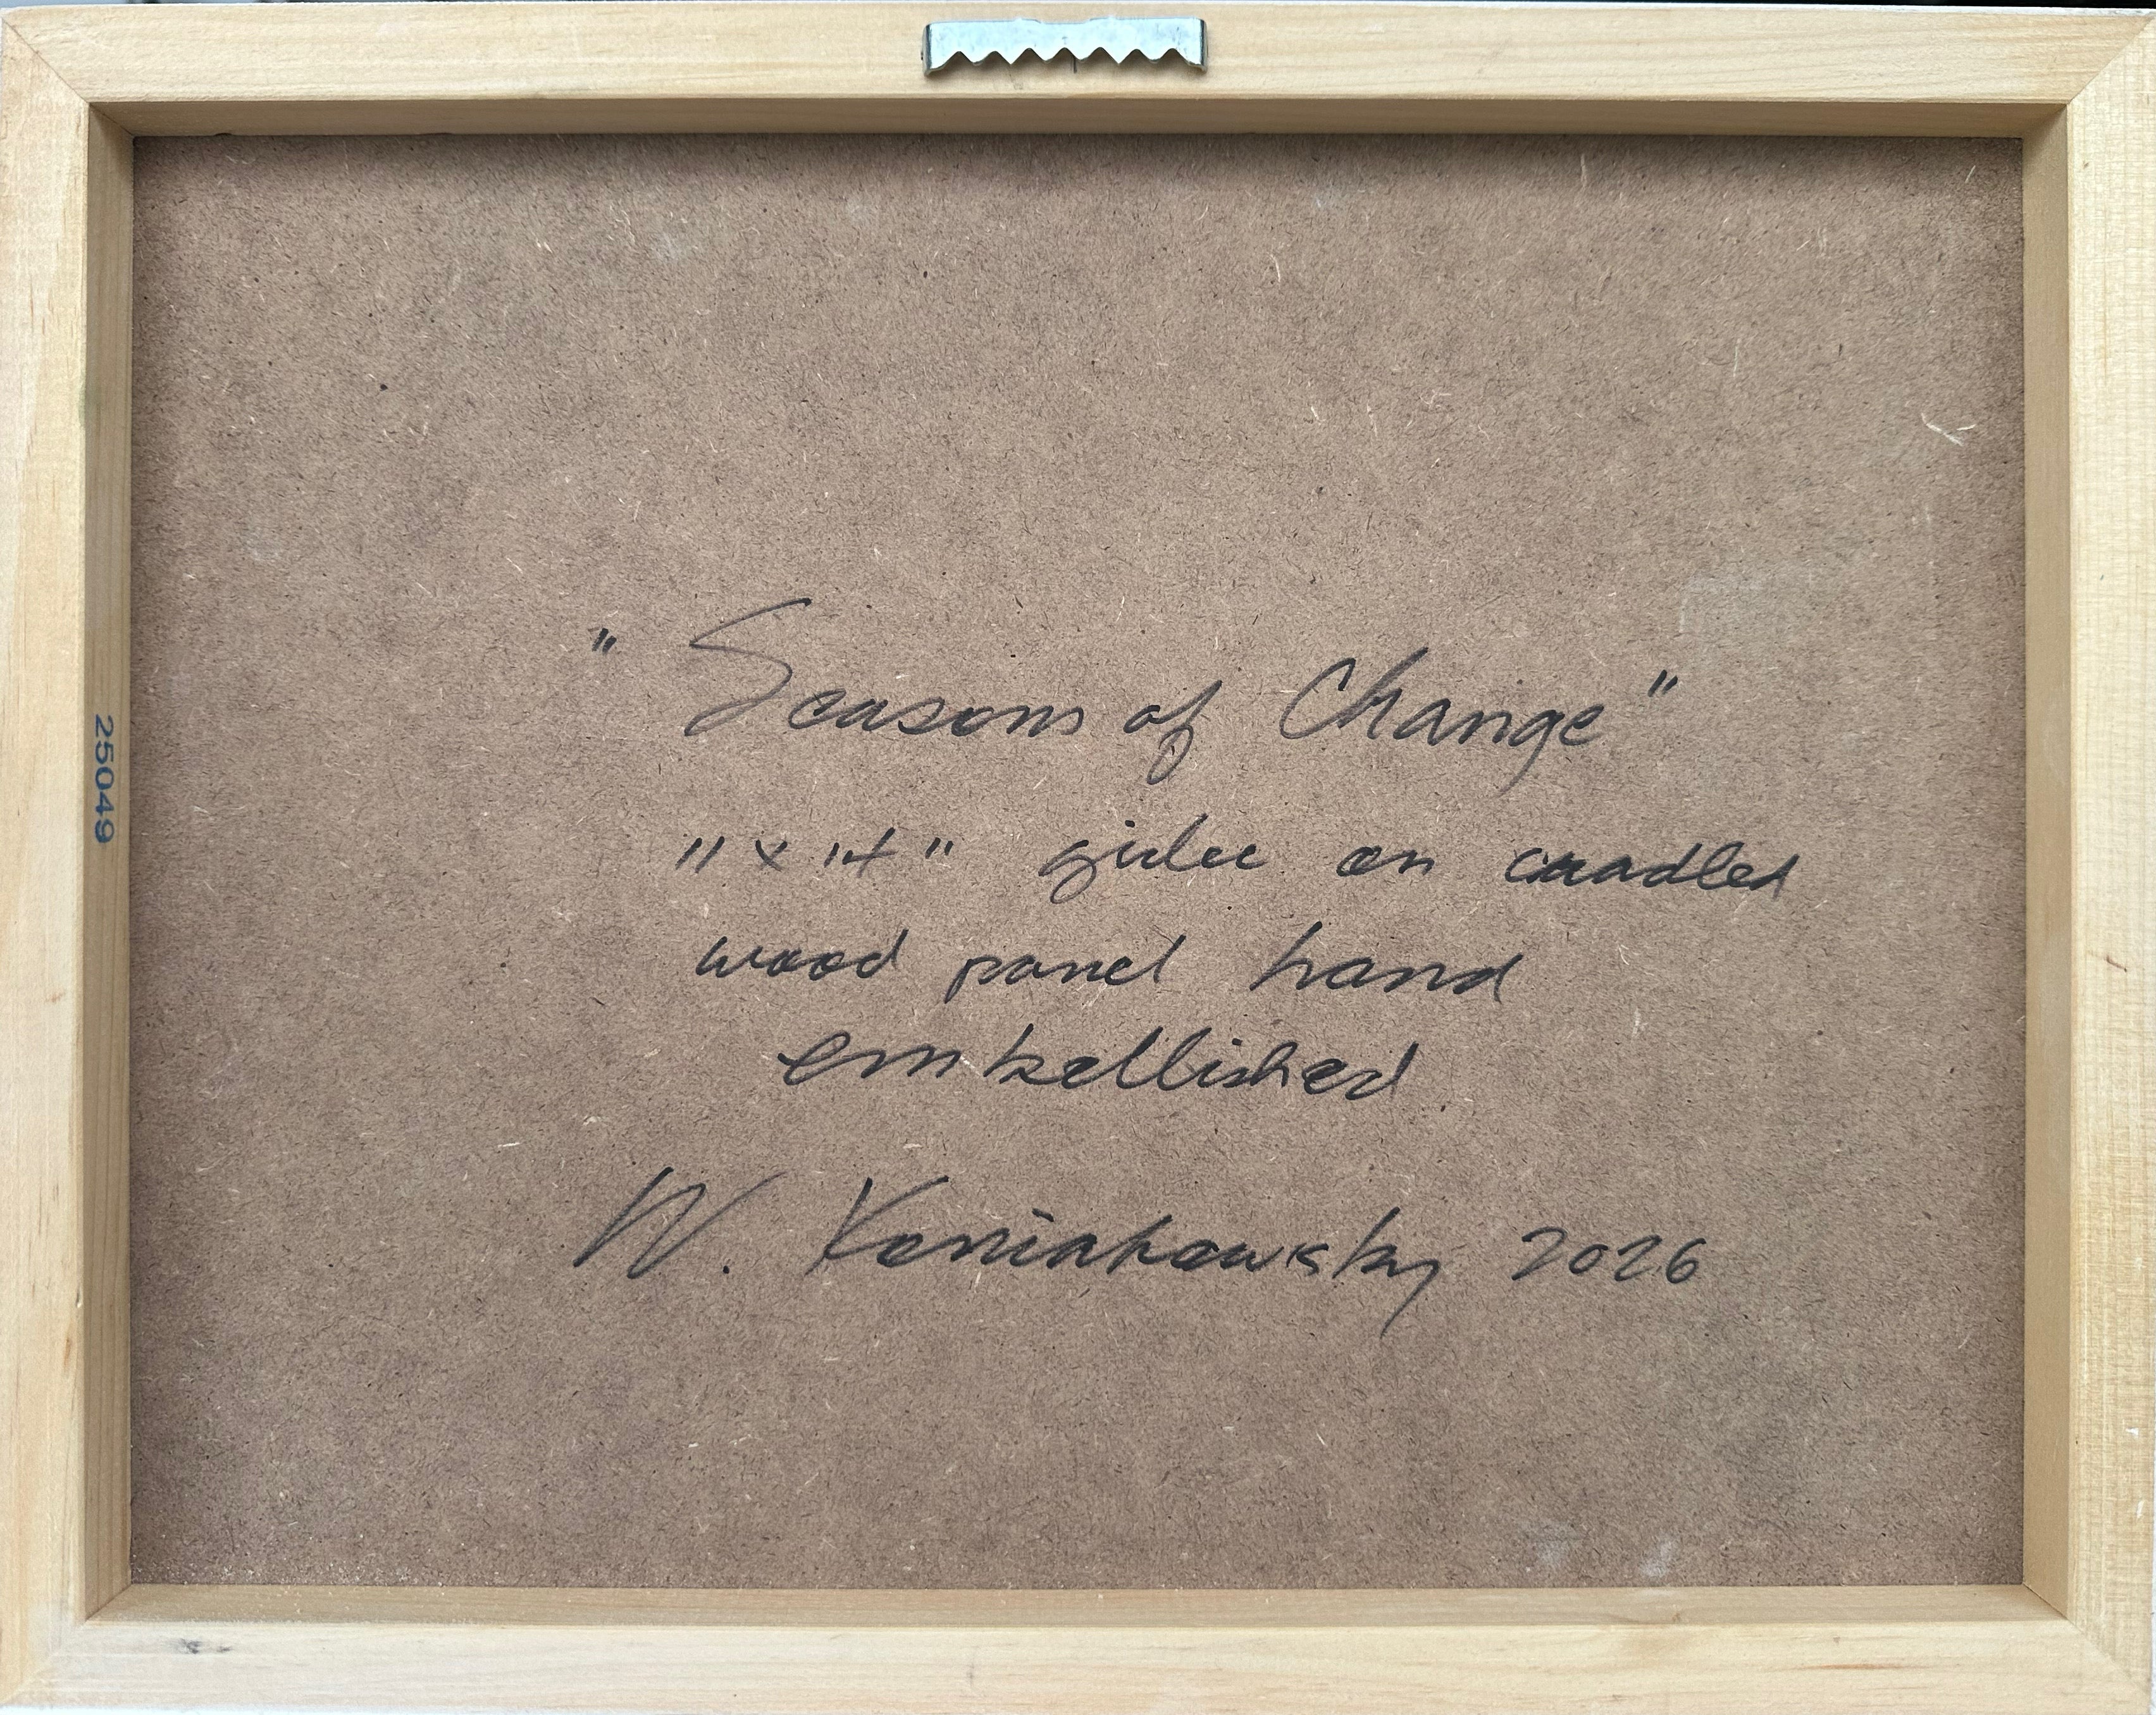 "Seasons of Change"
11 x 14" giclee on cradled
wood panel hand
embellished.
W. Koniakowsky 2026
25049